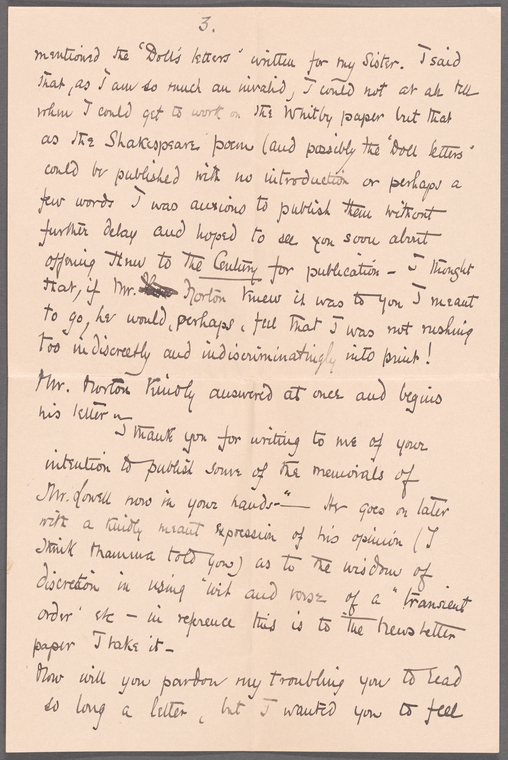 3.
mentioned the "Doll's letters" written for my Sister. I said
that, as I am so much an invalid, I could not at all tell
when I could get to work on the Whitby paper but that
as the Shakespeare poem (and possibly the "Doll letters"
could be published with no introduction or perhaps a
few words I was anxious to publish them without
further delay and hoped to see you soon about
offering them to the Century for publication - I thought
that, if Mr. Norton knew it was to you I meant
to go, he would, perhaps, feel that I was not rushing
too indiscreetly and indiscriminatingly into print!
Mr. Norton kindly answered at once and begins
his letter -
I thank you for writing to me of your
intention to publish some of the memorials of
Mr. Lowell now in your hands -" - He goes on later
with a kindly meant expression of his opinion (I
think Mamma told you) as to the wisdom of
discretion in using "wit and verse of a "transient
order" etc - in reference this is to the Newsletter
paper I take it -
Now will you pardon my troubling you to read
so long a letter, but I wanted you to feel